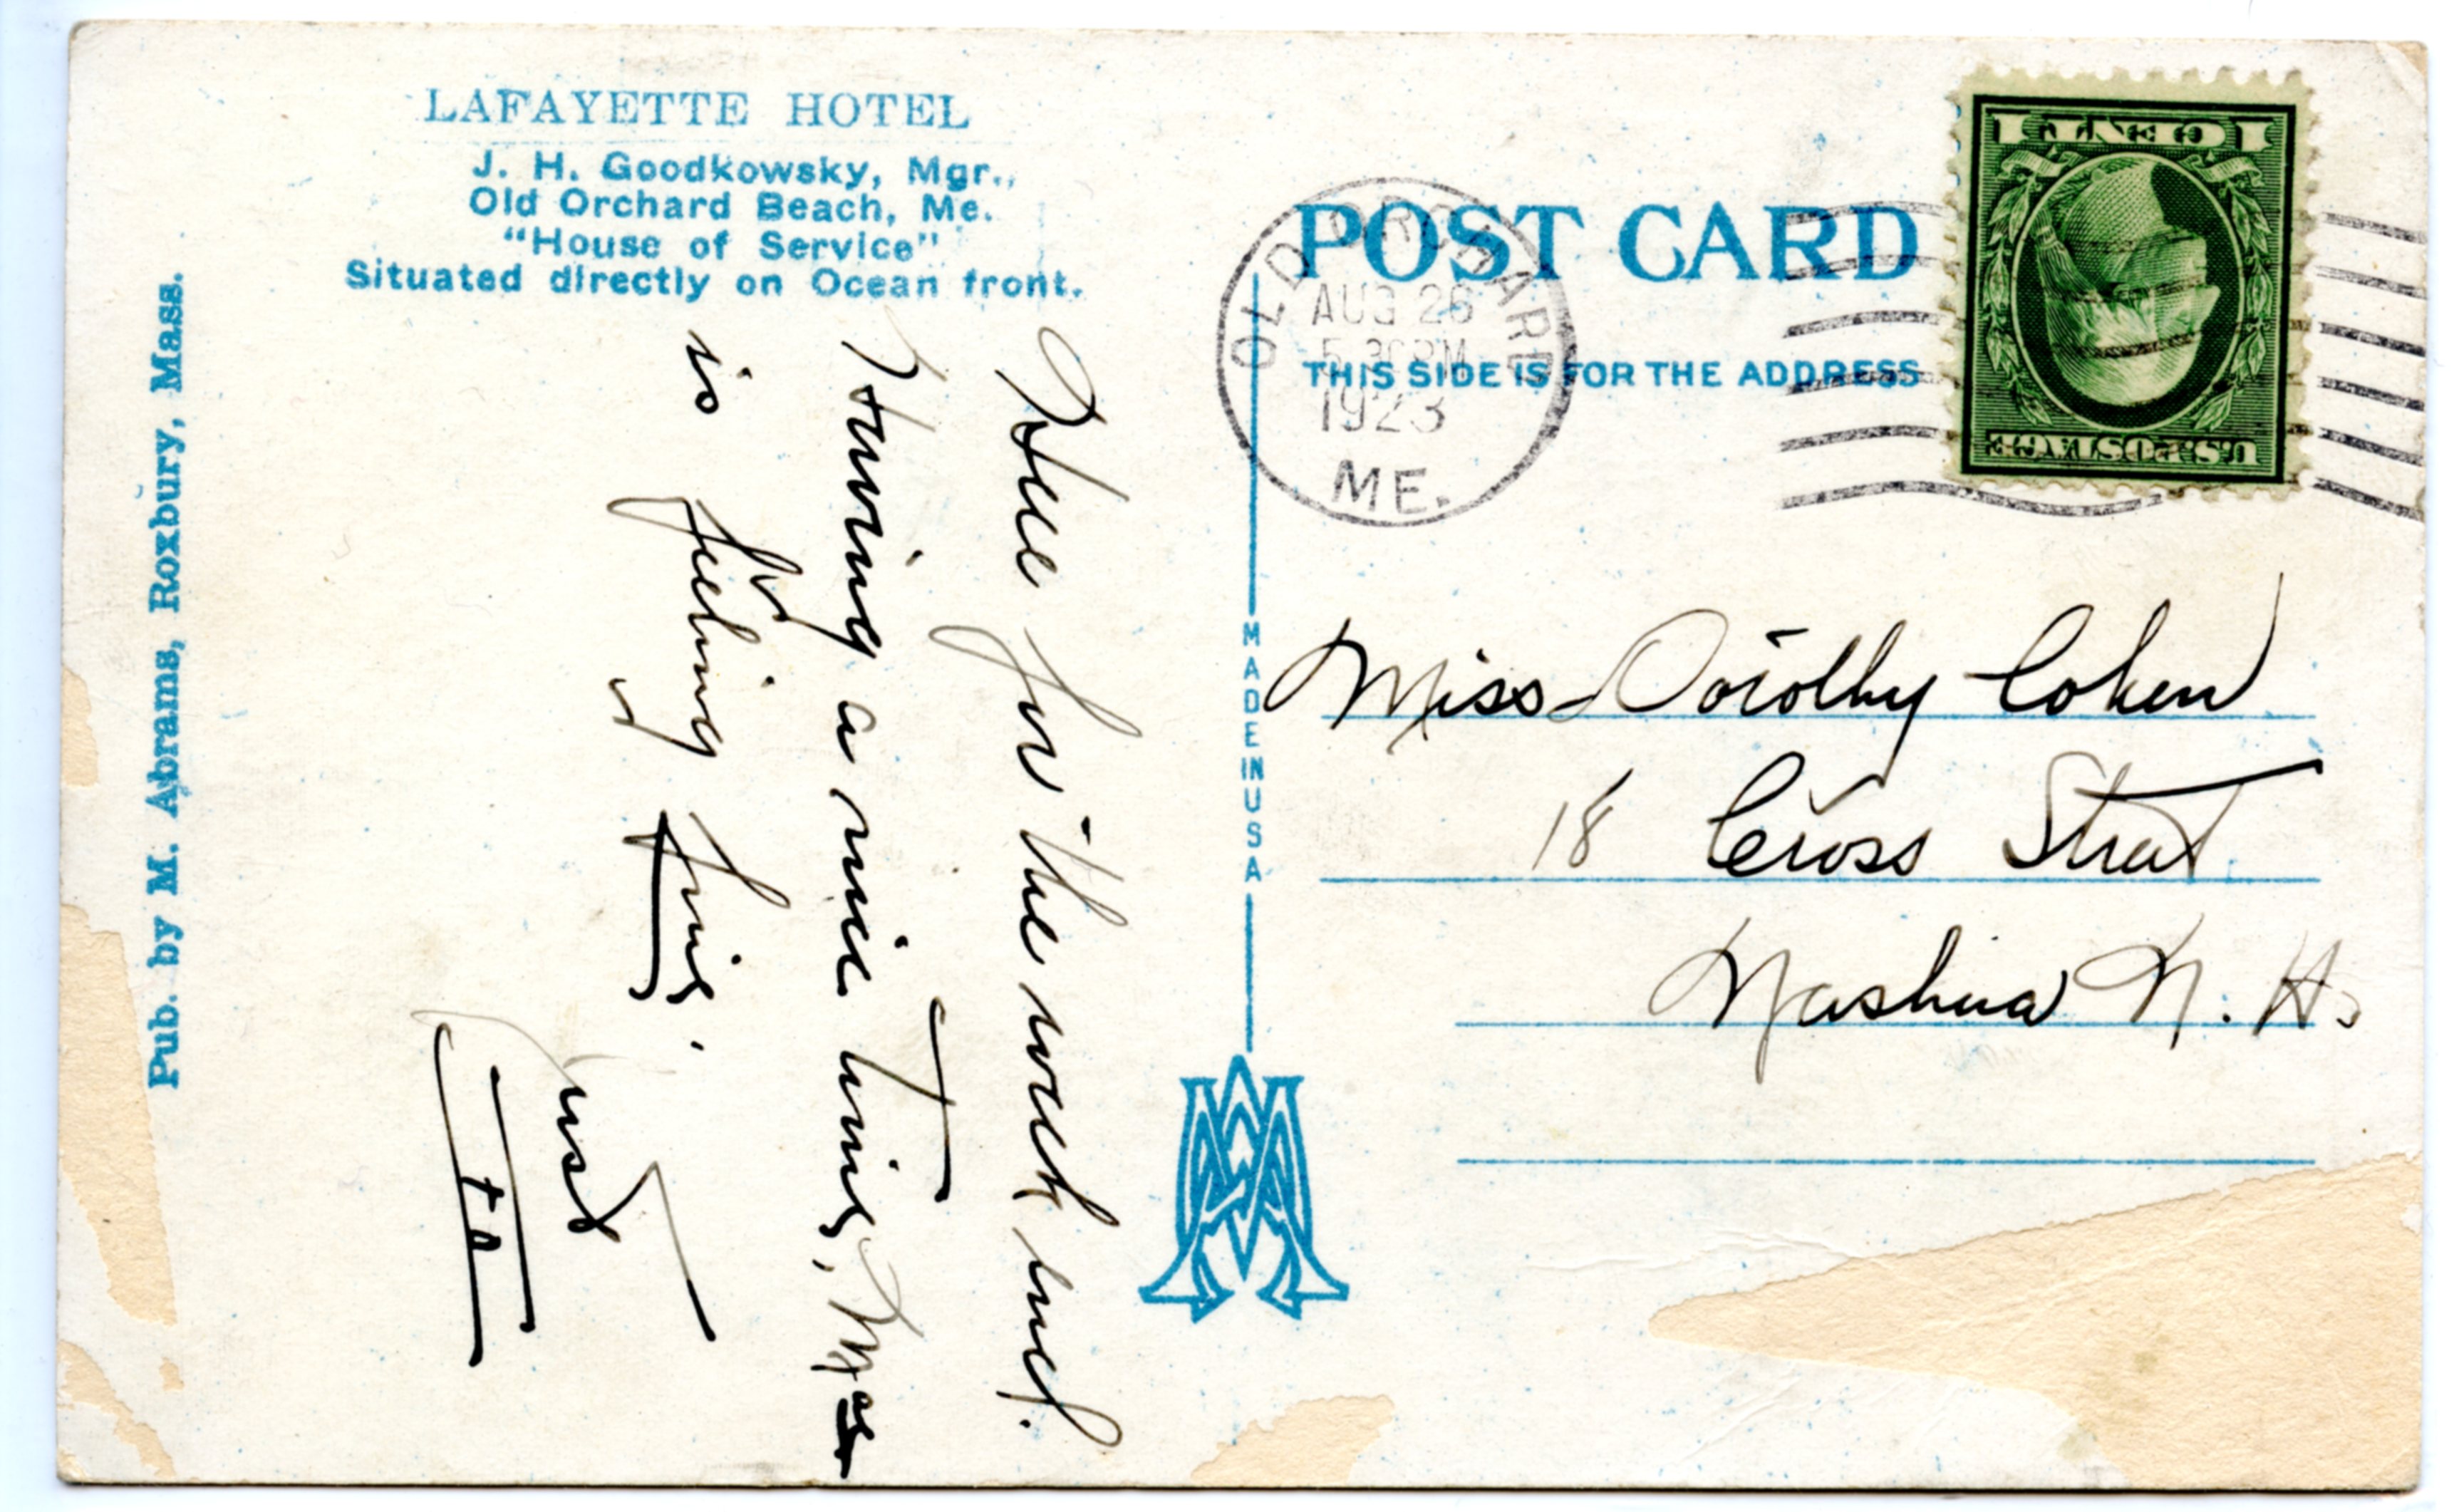 LAFAYETTE HOTEL
J. H. Goodkowsky, Mgr.,
Old Orchard Beach, Me.
"House of Service"
Situated directly on Ocean front.
Pub. by M. Abrams, Roxbury, Mass.
Here for the week end.
Having a nice time, Ma
is feeling fine.
POST CARD
THIS SIDE IS FOR THE ADDRESS
MADE IN USA
OLD ORCHARD
AUG 26
5 30 PM
1923
ME.
U.S. POSTAGE
1 CENT 1
Miss Dorothy Cohen
18 Cross Street
Nashua N. H.